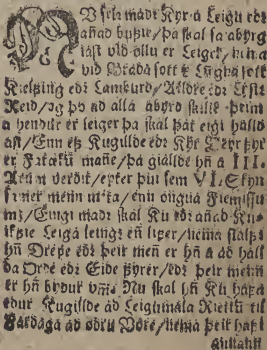 NU selr madr Kyr á Leigu edr
añad bufie/ þa skal sa abyrg
iast vid öllu er Leiger/ nema
vid Bráda sott e Lungna sott
Kielfing edr Lamburd/ Ælldre edr
Reid/ og þo ad alla abyrd skilie þeim
a hendur er leiger þa skal þat eigi halld
ast/ Enn ef Kugillde edr Kyr
er Fatæku mañe/ þa giallde hñ a III.
Aꝛum verdit/ epter þui sem VI. Skyn
samer menn meta/ enn öngua
/ Eingi madr skal Ku edr añad
leingr en hier/ nema
hñ Drepe edr þeir men er hñ a ad hall
da Orde edr Eide fyrer/ edr þeir menn
er hñ bydur Nu skal hñ Ku hafa
edur Kugillde ad Leigumála Riettu til
Fardaga ad ödru Vöre/ nema þeir hafi